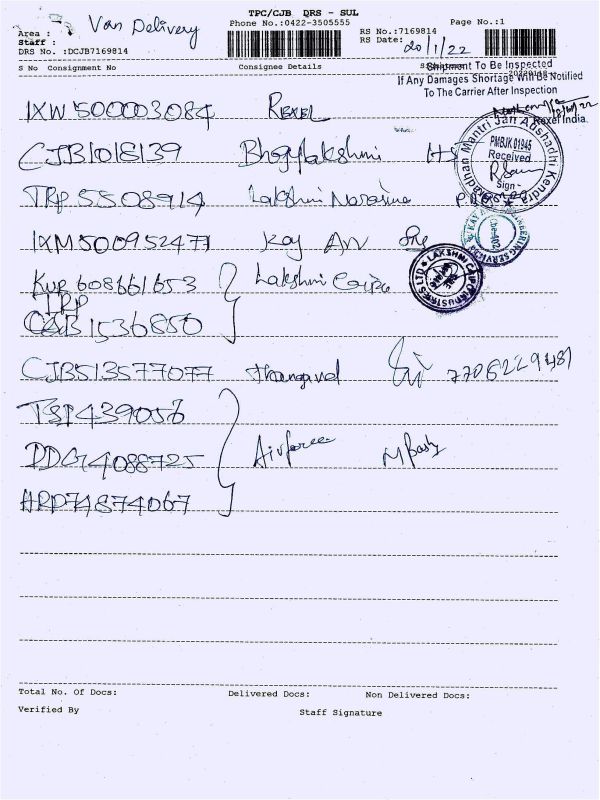 TPC/CJB DRS - SUL
Phone No.:0422-3505555
Page No.:1
Area : Van Delivery
Staff :
DRS No. :DCJB7169814
RS No.:7169814
RS Date: 20/1/22
S No Consignment No Consignee Details
Shipment To Be Inspected
If Any Damages Shortage Will Be Notified
To The Carrier After Inspection
Rexel India.
IXW 500003084 REXEL
Pradhan Mantri Jan Aushadhi Kendra
PMBJK 01945
Received
Sign
CJB1018139 Bhogylakshmi
TRP 5508914 Lakshmi Narasima
IXM500952477 Kay Arr
KUP 608661653 Lakshmi
TRP
CAB 1536850
LAKSHMI INDUSTRIES LTD
CJB513577077 Thangavel 7706229487
TSP439056
DDG74088725 Airforce
ARD74874067
Total No. Of Docs: Delivered Docs: Non Delivered Docs:
Verified By Staff Signature